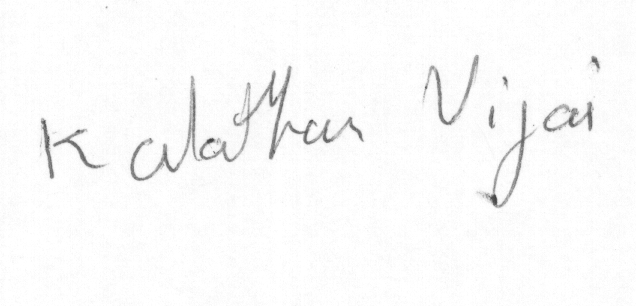 Kalathan Vijai